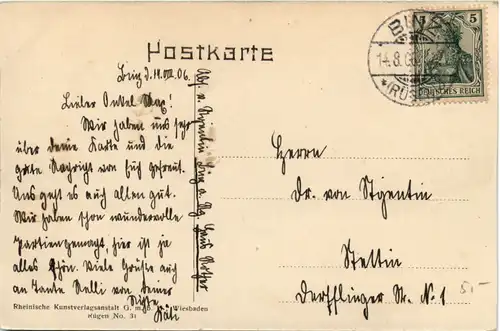 Postkarte
BINZ
14.8.06
*(RÜG
5
DEUTSCHES REICH
Binz d. 14.VIII.06.
Lieber Onkel Max!
Wir haben uns sehr
über deine Karte und die
gute Nachricht von Euch gefreut.
Uns geht es auch allen gut.
Wir haben schon wundervolle
Partien gemacht, hier ist ja
alles schön. Viele Grüße auch
an Tante Nelli von Deiner
Nichte
Käti
Abs. v. Stigentin Binz a. Rg. Haus
Herrn
Dr. von Stigentin
Stettin
Derfflinger Str. N. 1
5,-
Rheinische Kunstverlagsanstalt G. m. b. Wiesbaden
Rügen No. 31